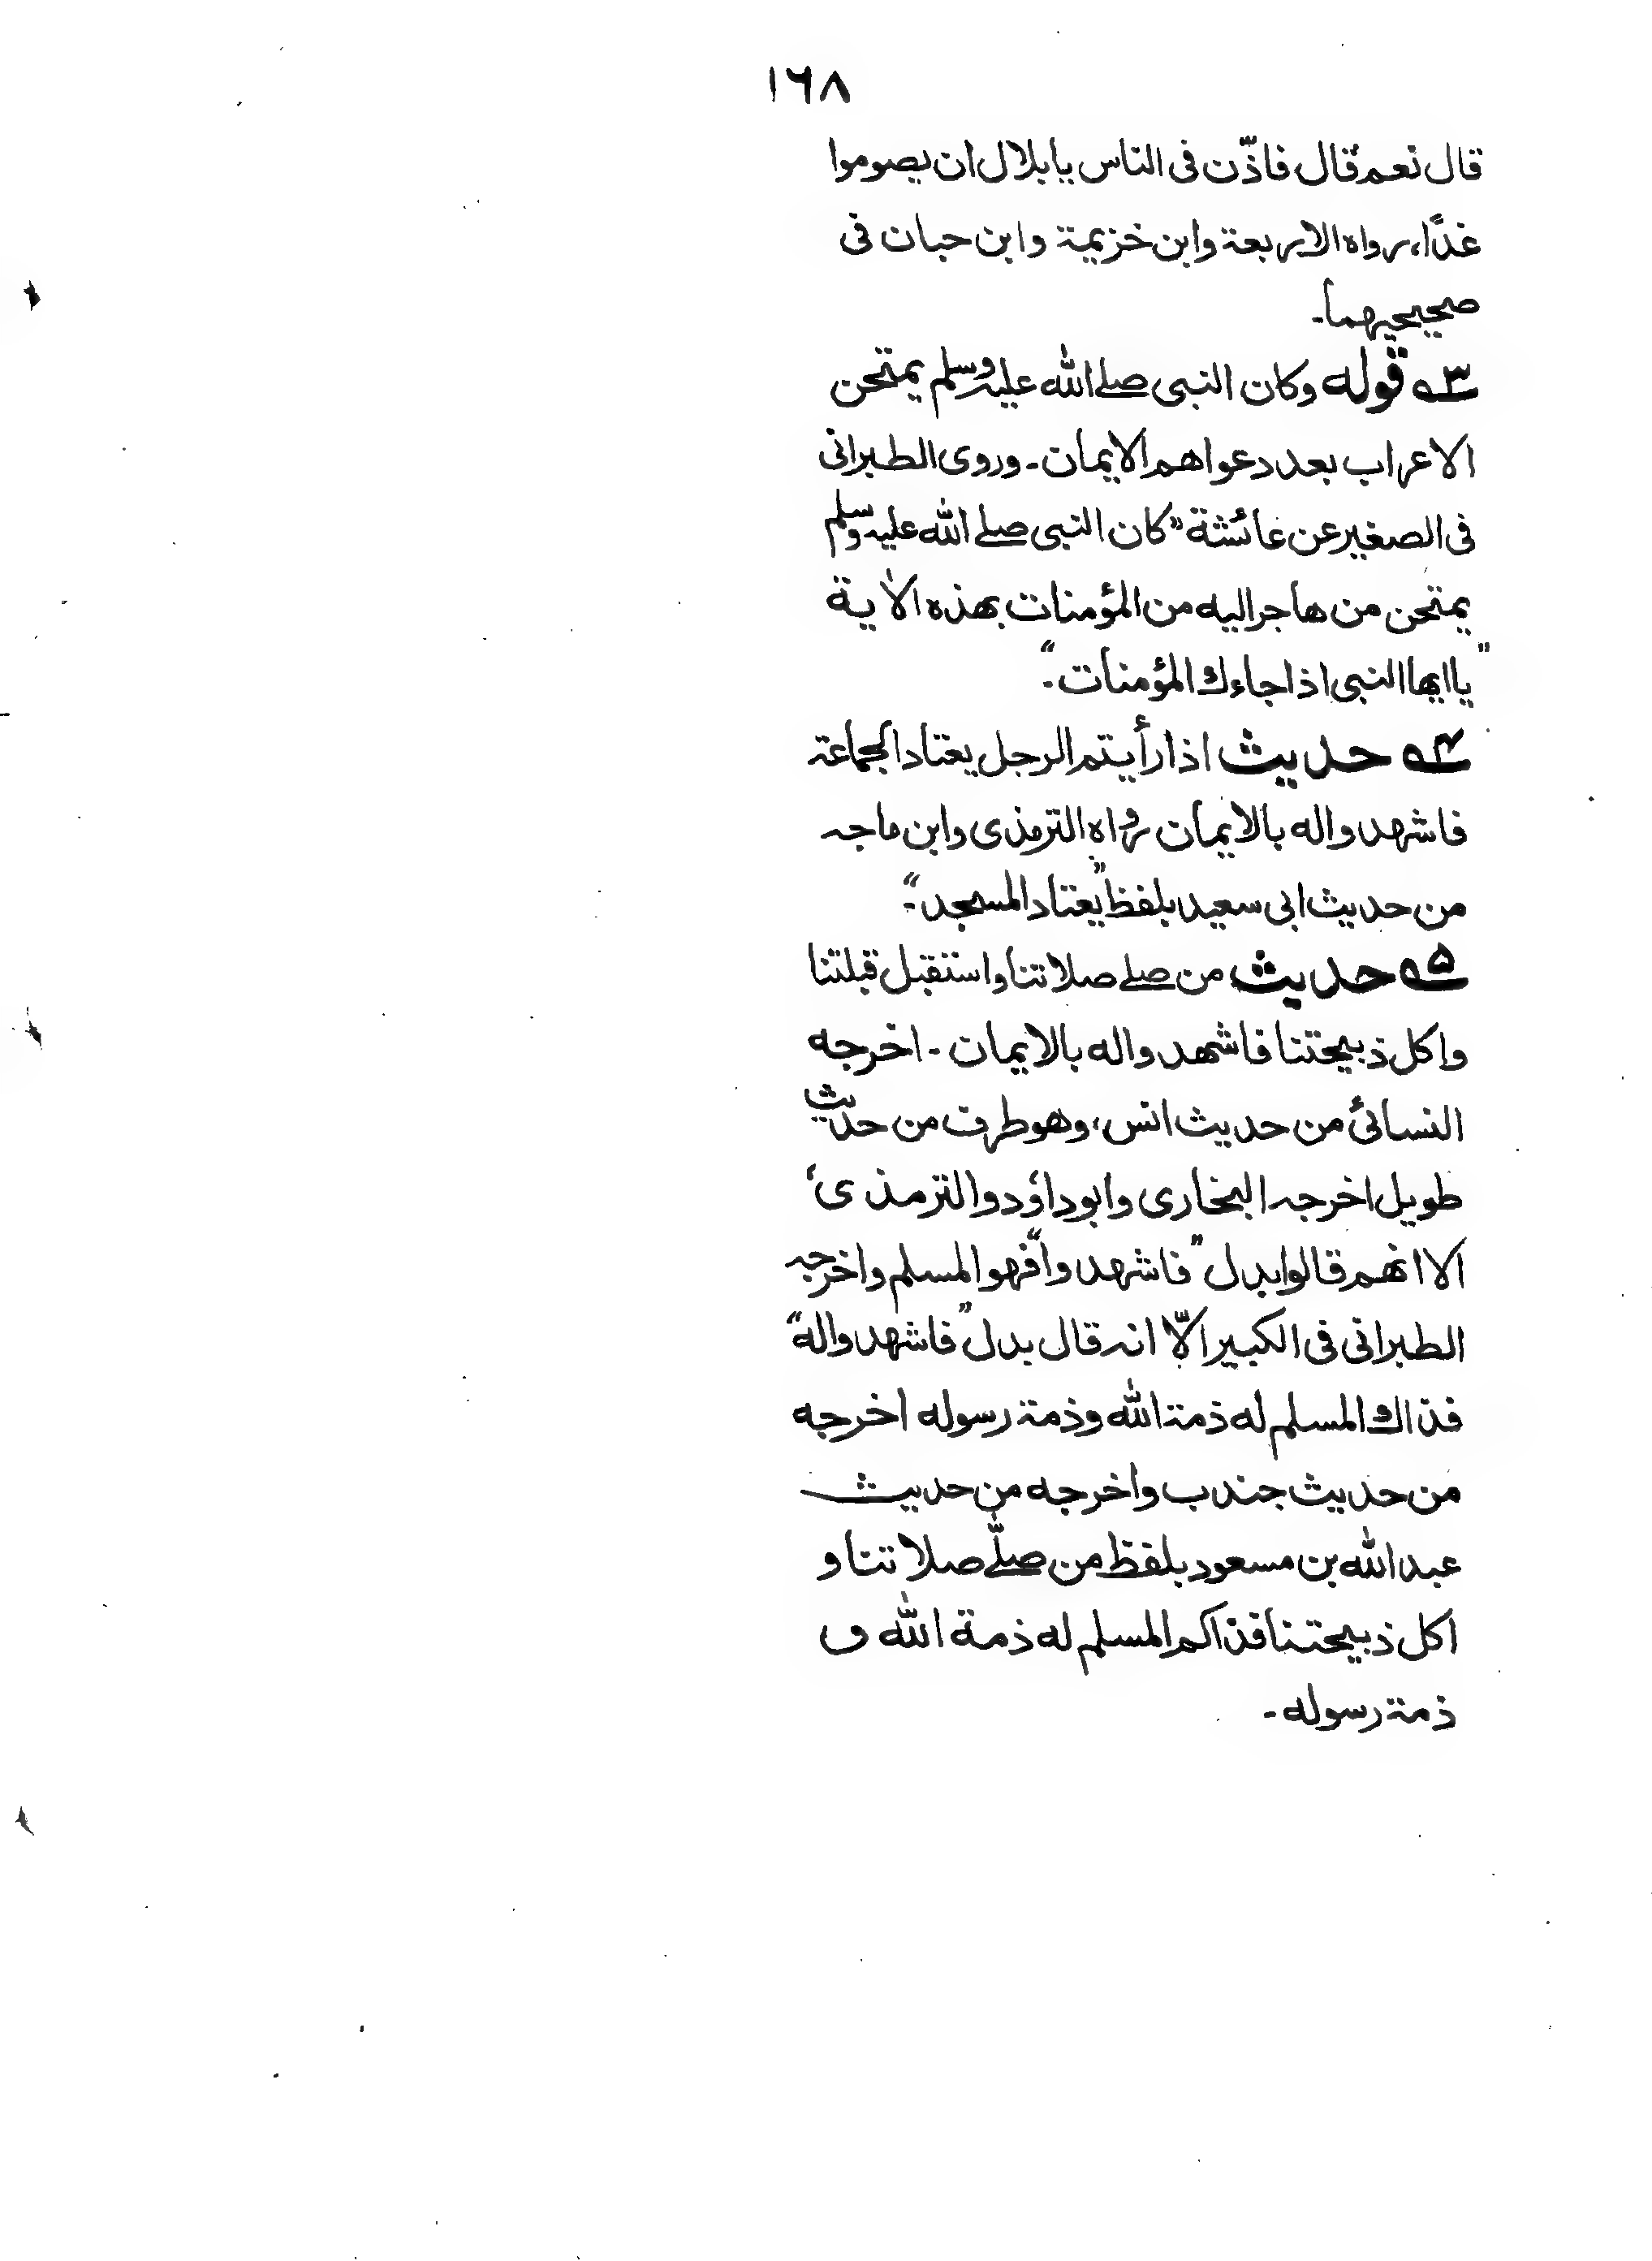 ١٦٨
قال نعم قال فاذّن فى الناس يا بلال ان يصوموا
غدًا، رواه الاربعة وابن خزيمة وابن حبان فى
صحيحيهما-
٣ه قوله وكان النبى صلى الله عليه وسلم يمتحن
الاعراب بعد دعواهم الايمان- وروى الطبرانى
فى الصغير عن عائشة "كان النبى صلى الله عليه وسلم
يمتحن من هاجر اليه من المؤمنات بهذه الأية
"يا ايها النبى اذا جاءك المؤمنات"-
۴ه حديث اذا رأيتم الرجل يعتاد الجماعة
فاشهدوا له بالايمان رواه الترمذى وابن ماجه
من حديث ابى سعيد بلفظ "يعتاد المسجد"-
۵ه حديث من صلى صلاتنا واستقبل قبلتنا
واكل ذبيحتنا فاشهدوا له بالايمان- اخرجه
النسائى من حديث انس، وهو طرف من حديث
طويل اخرجه البخارى وابوداؤد والترمذى،
الا انهم قالوا بدل "فاشهدوا" فهو المسلم واخرجه
الطبرانى فى الكبير الّا انه قال بدل "فاشهدوا له"
فذاك المسلم له ذمة الله وذمة رسوله اخرجه
من حديث جندب واخرجه من حديث
عبد الله بن مسعود بلفظ من صلّى صلاتنا و
اكل ذبيحتنا فذاكم المسلم له ذمة الله و
ذمة رسوله-